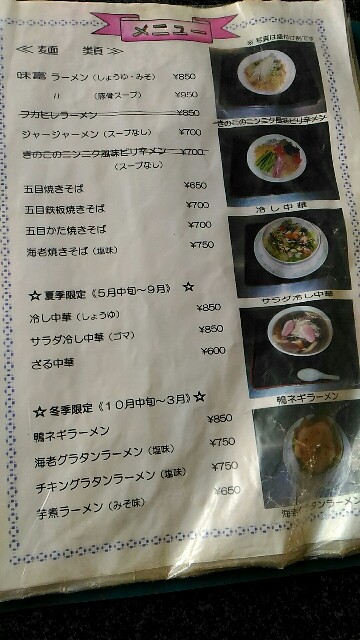 メニュー
※ 写真は盛付け例です
≪ 麦面 類頁 ≫
味富 ラーメン（しょうゆ・みそ） ¥850
〃 （豚骨スープ） ¥950
フカヒレラーメン ¥850
ジャージャーメン（スープなし） ¥700
きのこのニンニク風味ピリ辛メン ¥700
（スープなし）
五目焼きそば ¥650
五目鉄板焼きそば ¥700
五目かた焼きそば ¥700
海老焼きそば（塩味） ¥750
☆ 夏季限定《５月中旬～９月》 ☆
冷し中華（しょうゆ） ¥850
サラダ冷し中華（ゴマ） ¥850
ざる中華 ¥600
☆ 冬季限定《１０月中旬～３月》☆
鴨ネギラーメン ¥850
海老グラタンラーメン（塩味） ¥750
チキングラタンラーメン（塩味） ¥750
芋煮ラーメン（みそ味） ¥650
きのこのニンニク風味ピリ辛メン
冷し中華
サラダ冷し中華
鴨ネギラーメン
海老グラタンラーメン